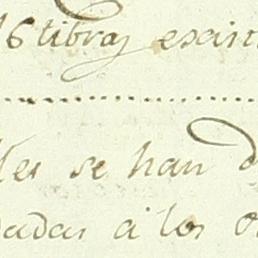 16 libras escrit
lles se han d
dadas á los o